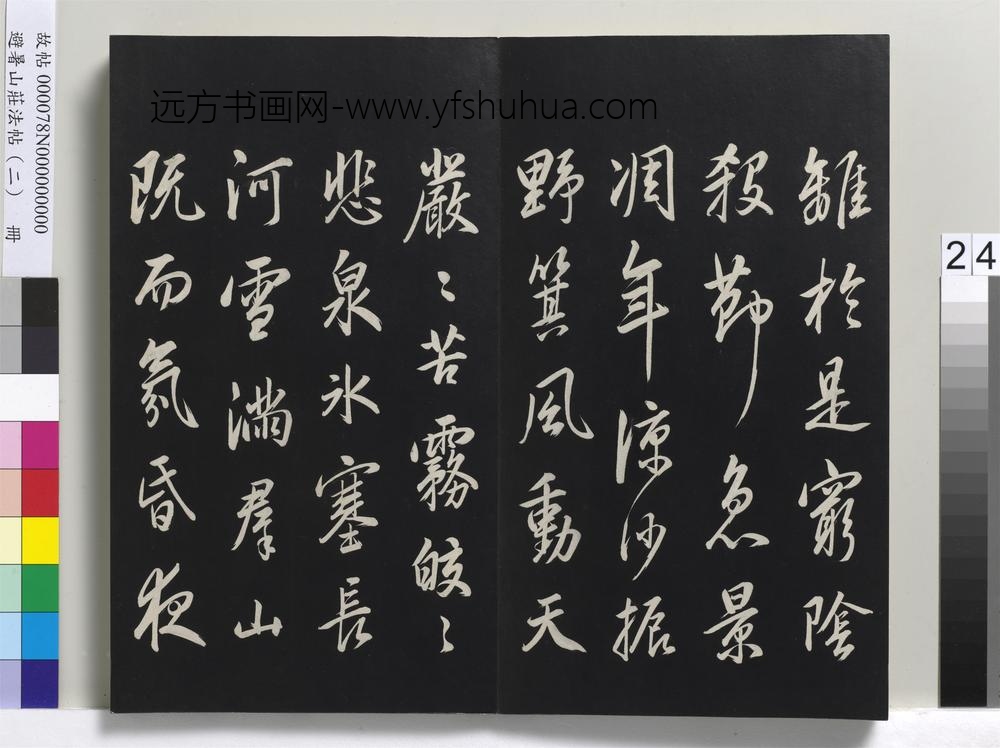 離於是窮陰
殺節急景
凋年涼沙振
野箕風動天
嚴〻苦霧皎〻
悲泉氷塞長
河雪滿羣山
既而氛昏夜
远方书画网-www.yfshuhua.com
故帖 000078N000000000
避暑山莊法帖（二） 冊
24